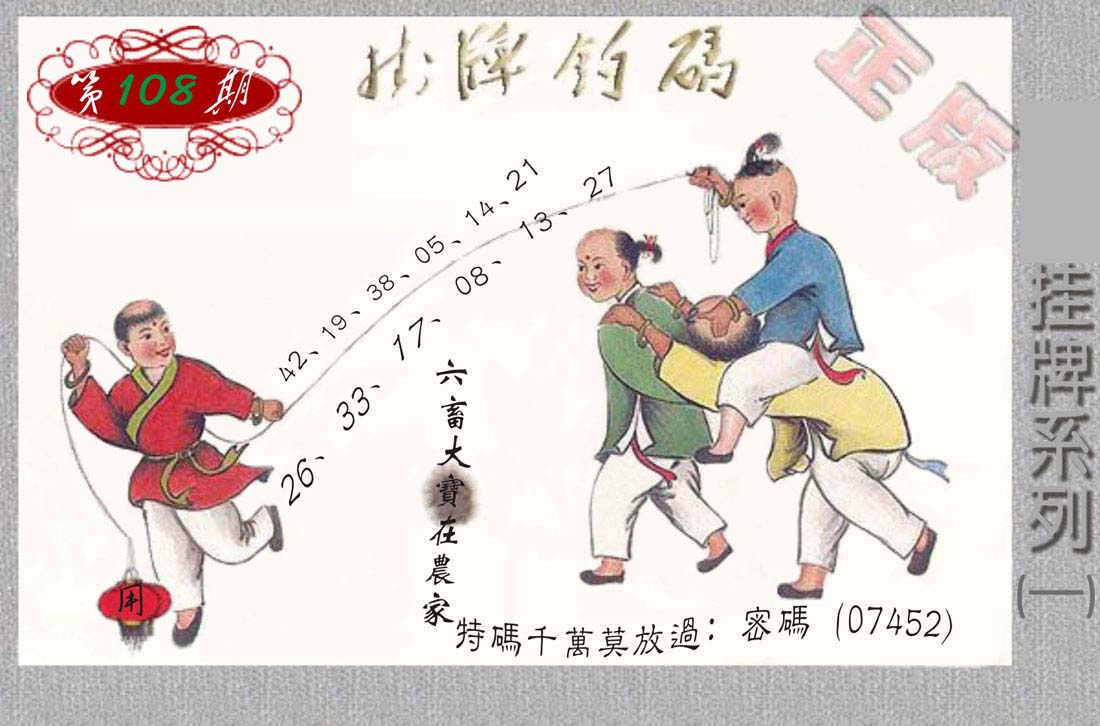 第108期
掛牌釣碼
正版
42、19、38、05、14、21
26、33、17、08、13、27
六畜大寶在農家
用
特碼千萬莫放過：密碼 (07452)
挂牌系列(一)